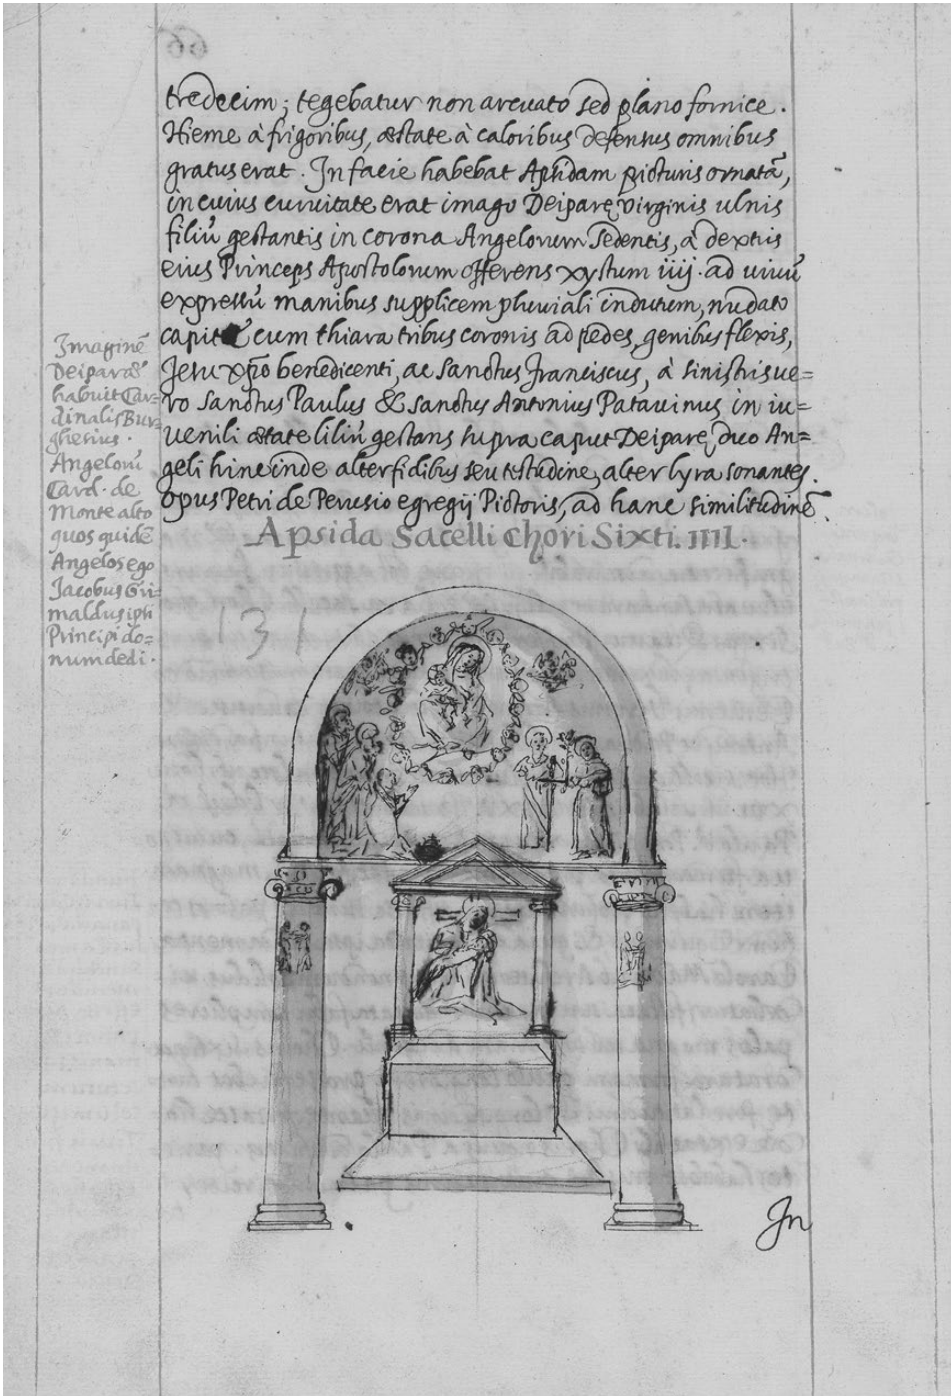 66
tredecim; tegebatur non arcuato sed plano fornice.
Hieme à frigoribus, æstate à caloribus defensus omnibus
gratus erat. In facie habebat Apsidam picturis ornatã,
in cuius curuitate erat imago Deiparę Virginis ulnis
filiũ gestantis in corona Angelorum sedentis, à dextris
eius Princeps Apostolorum offerens xystum iiij. ad uiuũ
expressũ manibus supplicem pluuiali indutum, nudato
capite cum thiara tribus coronis ad pedes, genibus flexis,
Jesu xp̃o benedicenti, ac Sanctus Franciscus, à sinistris ue=
ro Sanctus Paulus & Sanctus Antonius Patauinus in iu=
uenili ætate liliũ gestans supra caput Deiparę duo An=
geli hinc inde alter fidibus seu testudine, alter lyra sonantes.
opus Petri de Perusio egregij Pictoris, ad hanc similitudinẽ.
Imaginẽ
Deiparæ
habuit Car=
dinalis Bur=
ghesius.
Angelorũ
Card. de
Monte alto
quos quidẽ
Angelos ego
Jacobus Gri=
maldus ipsi
Principi do=
num dedi.
Apsida Sacelli Chori Sixti. IIII.
131
In